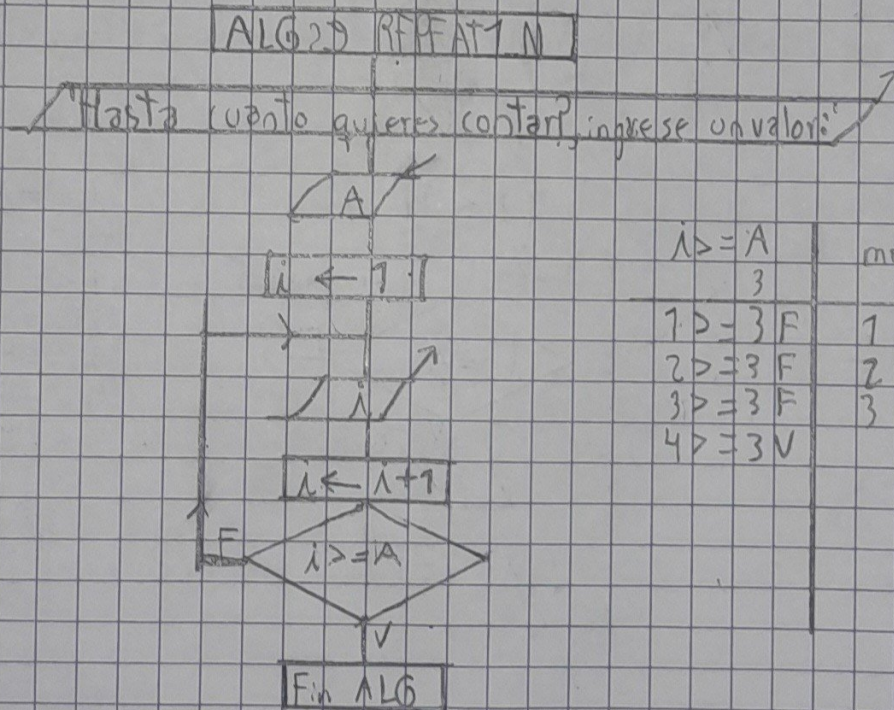 ALG 29 REPEAT 1_N
"Hasta cuánto quieres contar?, ingrese un valor:"
A
i ← 1
i
i ← i+1
F
i>=A
V
Fin ALG
i>=A
3
1>=3 F 1
2>=3 F 2
3>=3 F 3
4>=3 V